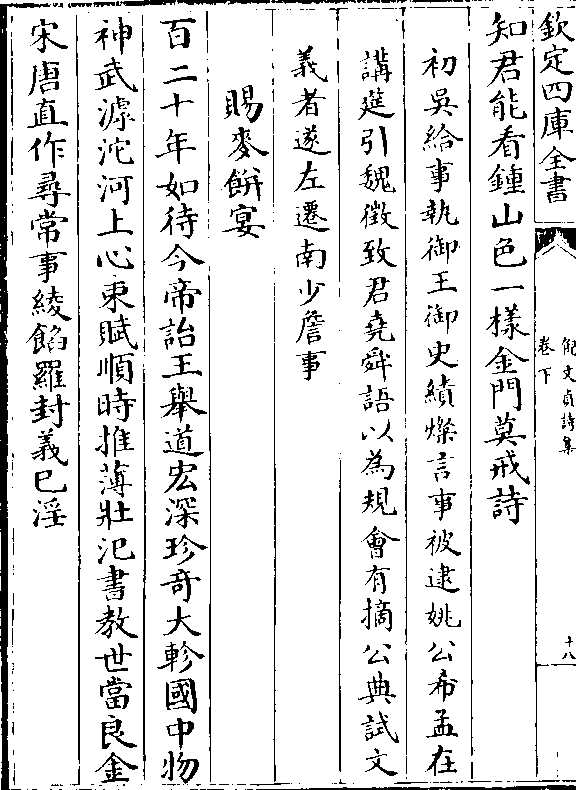 欽定四庫全書
倪文貞詩集
卷下
十八
知君能看鍾山色一樣金門莫戒詩
初吳給事執御王御史績燦言事被逮姚公希孟在
講筵引魏徵致君堯舜語以為規會有摘公典試文
義者遂左遷南少詹事
賜麥餅宴
百二十年如待今帝詒王舉道宏深珍奇大軫國中物
神武滹沱河上心柬賦順時推薄壯汜書教世當良金
宋唐直作尋常事綾餡羅封義已淫